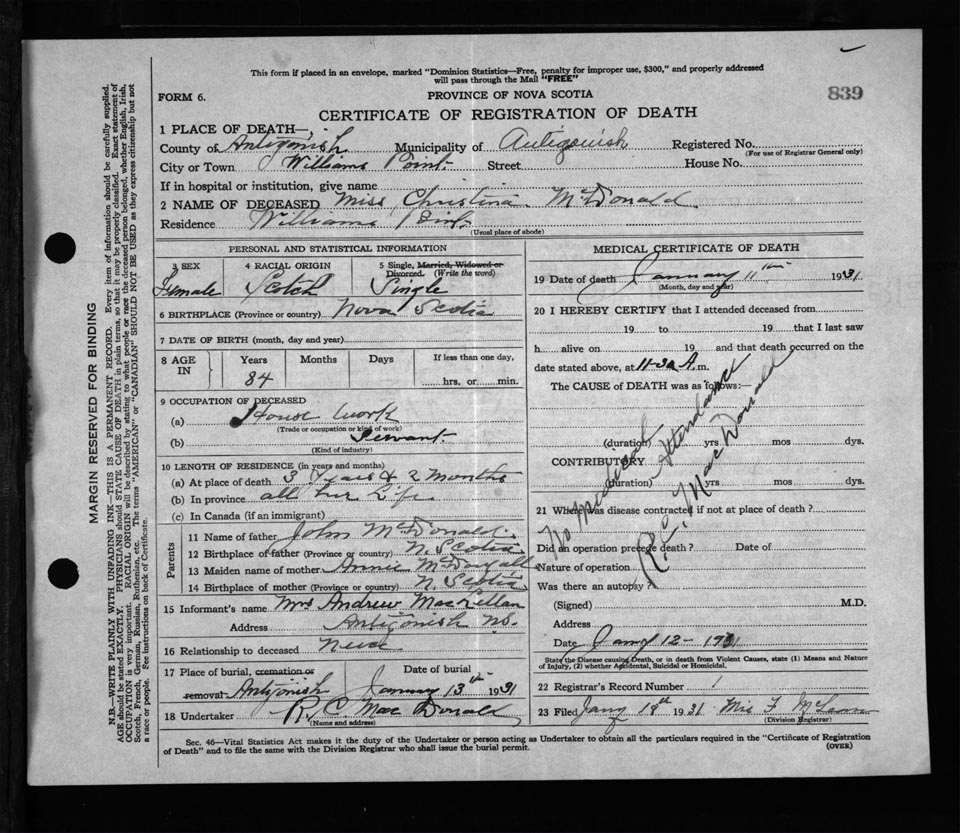 This form if placed in an envelope, marked "Dominion Statistics—Free, penalty for improper use, $300," and properly addressed
will pass through the Mail "FREE"
FORM 6.
PROVINCE OF NOVA SCOTIA
839
CERTIFICATE OF REGISTRATION OF DEATH
1 PLACE OF DEATH—
County of Antigonish Municipality of Antigonish Registered No.
(For use of Registrar General only)
City or Town Williams Point Street House No.
If in hospital or institution, give name
2 NAME OF DECEASED Miss Christina McDonald
Residence Williams Point
(Usual place of abode)
PERSONAL AND STATISTICAL INFORMATION
3 SEX 4 RACIAL ORIGIN 5 Single, Married, Widowed or Divorced. (Write the word)
Female Scotch Single
6 BIRTHPLACE (Province or country) Nova Scotia
7 DATE OF BIRTH (month, day and year)
8 AGE IN Years Months Days If less than one day,
84 hrs. or min.
9 OCCUPATION OF DECEASED
(a) House Work
(Trade or occupation or kind of work)
(b) Servant
(Kind of industry)
10 LENGTH OF RESIDENCE (in years and months)
(a) At place of death 3 Years & 2 Months
(b) In province all her Life
(c) In Canada (if an immigrant)
Parents
11 Name of father John McDonald
12 Birthplace of father (Province or country) N. Scotia
13 Maiden name of mother Annie McDougall
14 Birthplace of mother (Province or country) N. Scotia
15 Informant's name Mrs Andrew MacLellan
Address Antigonish NS.
16 Relationship to deceased Neice
17 Place of burial, cremation or Date of burial
removal Antigonish January 13th 1931
18 Undertaker R. C. MacDonald
(Name and address)
MEDICAL CERTIFICATE OF DEATH
19 Date of death January 11th 1931
(Month, day and year)
20 I HEREBY CERTIFY that I attended deceased from
19 to 19 that I last saw
h alive on 19 and that death occurred on the
date stated above, at 11-30 A.m.
The CAUSE OF DEATH was as follows:—
No Medical Attendance
R.C. MacDonald
(duration) yrs mos dys.
CONTRIBUTORY
(duration) yrs mos dys.
21 Where was disease contracted if not at place of death?
Did an operation precede death? Date of
Nature of operation
Was there an autopsy?
(Signed) M.D.
Address
Date Jany 12- 1931
State the Disease causing Death, or in death from Violent Causes, state (1) Means and Nature
of Injury, (2) whether Accidental, Suicidal or Homicidal.
22 Registrar's Record Number 1
23 Filed Jany 18th 1931 F
(Division Registrar)
Sec. 46—Vital Statistics Act makes it the duty of the Undertaker or person acting as Undertaker to obtain all the particulars required in the "Certificate of Registration
of Death" and to file the same with the Division Registrar who shall issue the burial permit.
(OVER)
MARGIN RESERVED FOR BINDING
N.B.—WRITE PLAINLY WITH UNFADING INK—THIS IS A PERMANENT RECORD. Every item of information should be carefully supplied.
AGE should be stated EXACTLY. PHYSICIANS should STATE CAUSE OF DEATH in plain terms, so that it may be properly classified. Exact statement of
OCCUPATION is very important. RACIAL ORIGIN will be described by stating to what people or race the deceased person belonged, whether English, Irish,
Scotch, French, German, Russian, Ruthenian, etc. The terms "AMERICAN" or "CANADIAN" SHOULD NOT BE USED as they express citizenship but not
a race or people. See instructions on back of Certificate.